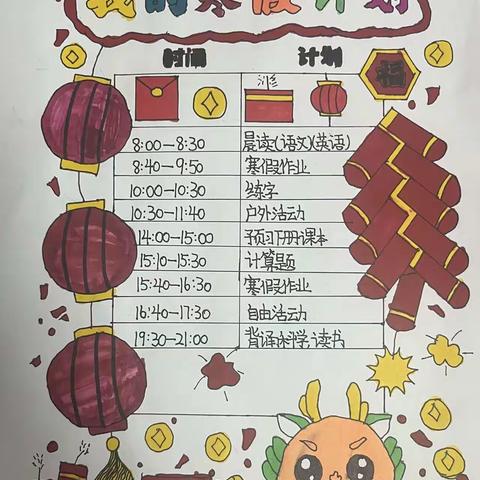 我的寒假计划
时间 计划
8:00—8:30 晨读(语文)(英语)
8:40—9:50 寒假作业
10:00—10:30 练字
10:30—11:40 户外活动
14:00—15:00 预习下册课本
15:10—15:30 计算题
15:40—16:30 寒假作业
16:40—17:30 自由活动
19:30—21:00 背诵科学,读书
福